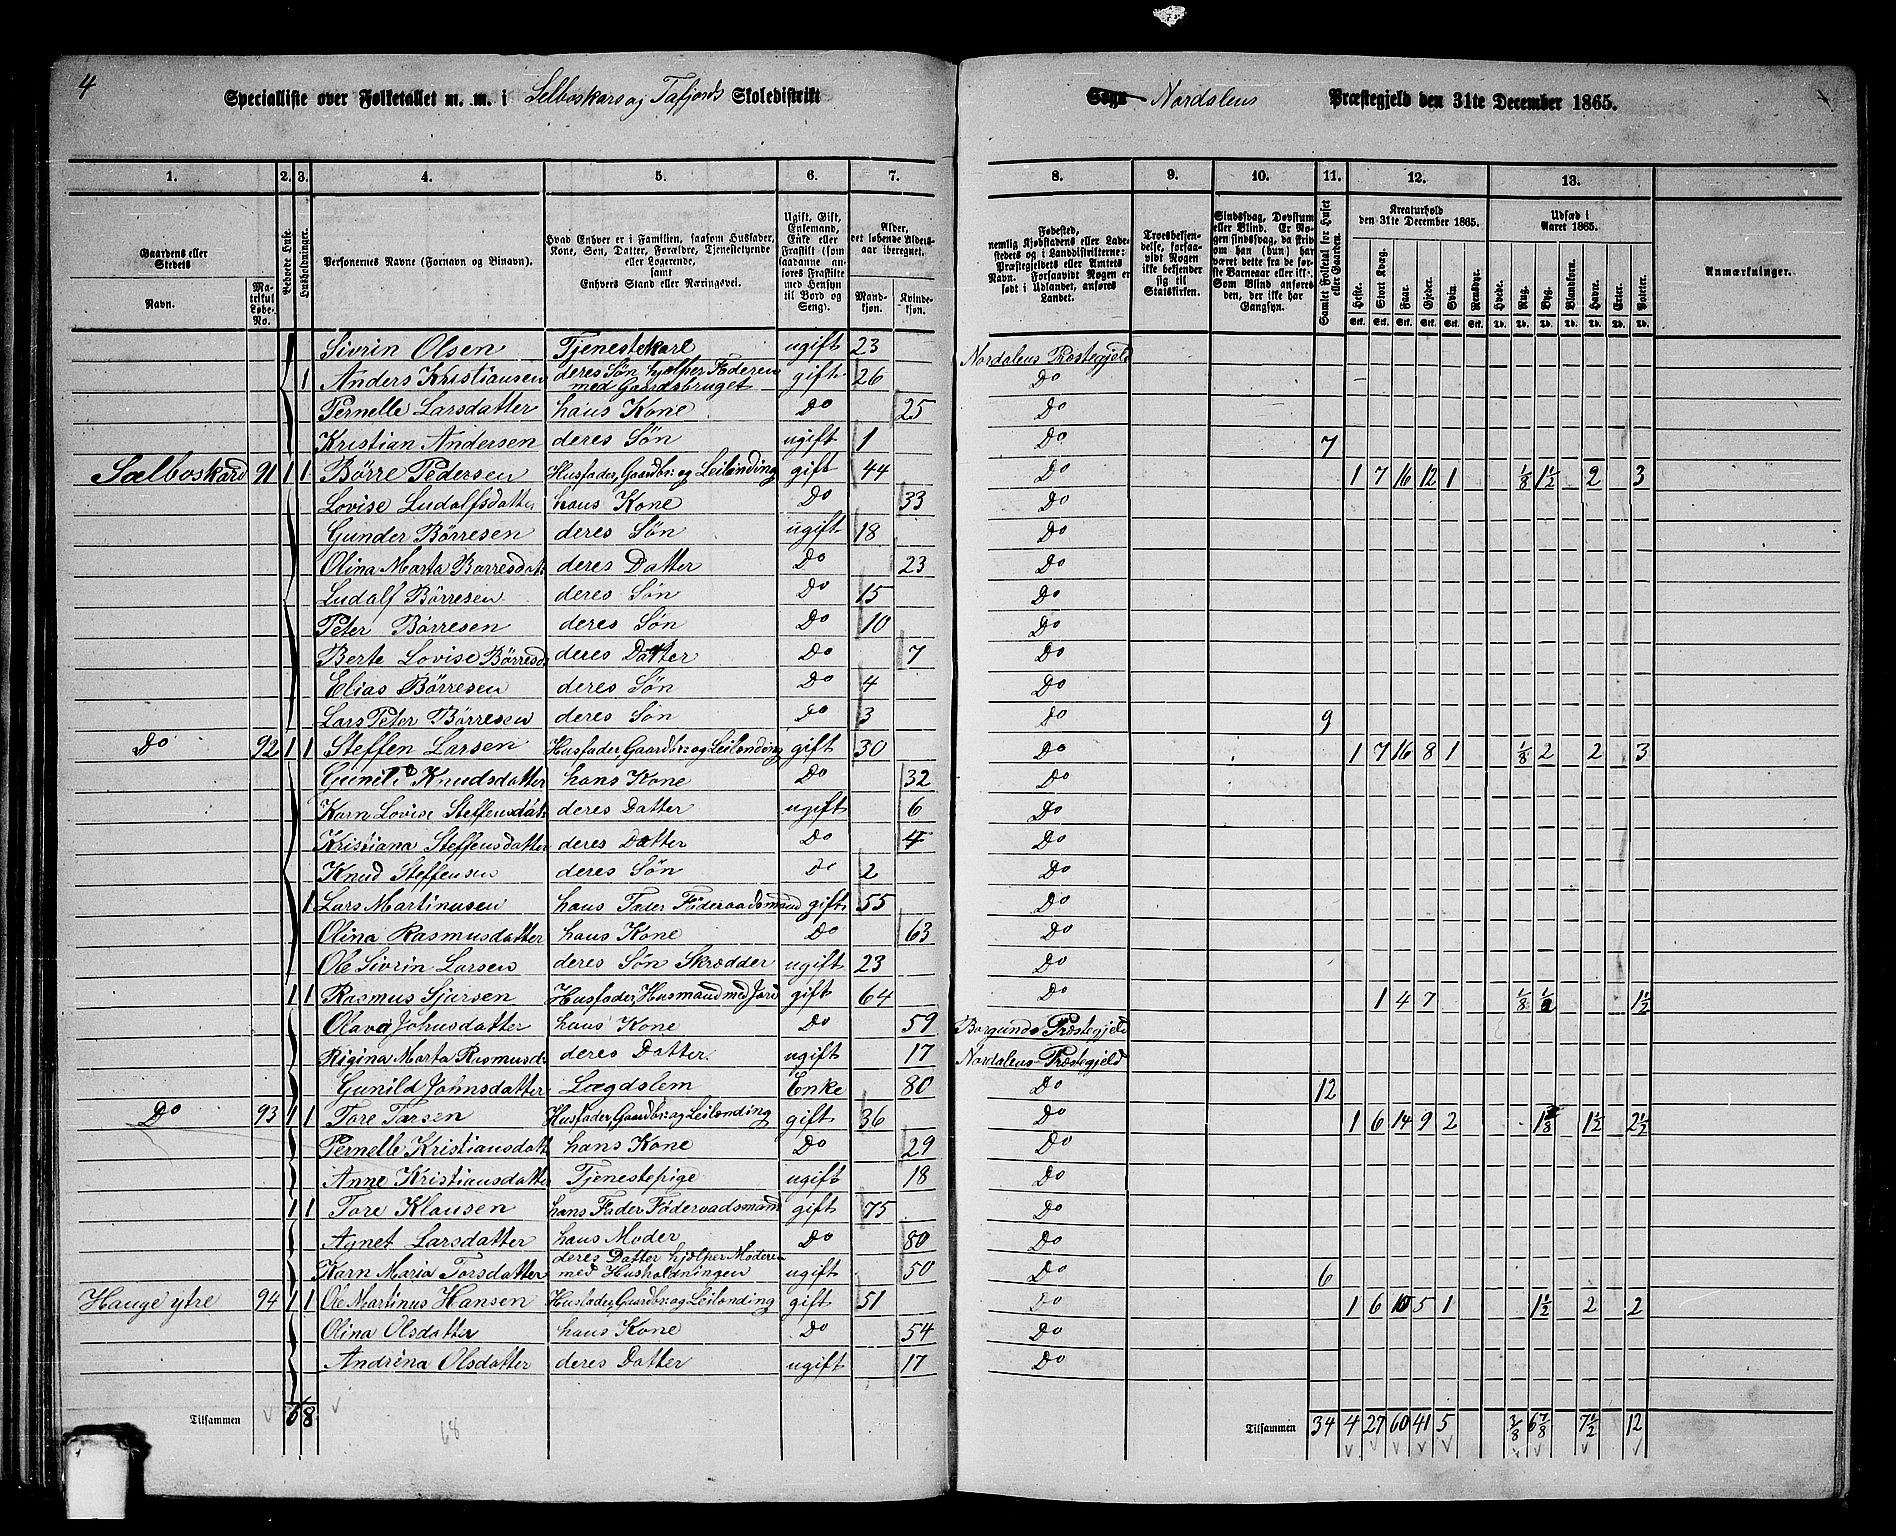 4
Specialliste over Folketallet m. m. i Selboskars og Tafjords Skoledistrikt
Sogn Nordalens Præstegjeld den 31te December 1865.
1. 2. 3. 4. 5. 6. 7. 8. 9. 10. 11. 12. 13.
Gaardens eller Stedets
Navn.
Matrikul Løbe-No.
Beboede Huse.
Husholdninger.
Personernes Navne (Fornavn og Binavn).
Hvad Enhver er i Familien, saasom Husfader, Kone, Søn, Datter, Forældre, Tjenestetyende eller Logerende, samt Enhvers Stand eller Næringsvei.
Ugift, Gift, Enkemand, Enke eller Fraskilt (som saadanne anføres Fraskilte med Hensyn til Bord og Seng).
Alder, det løbende Aldersaar iberegnet.
Mandkjøn.
Kvindekjøn.
Fødested, nemlig Kjøbstadens eller Ladestedets og i Landdistrikterne: Præstegjeldets eller Amtets Navn. Forsaavidt Nogen er født i Udlandet, anføres Landet.
Troesbekjendelse, forsaavidt Nogen ikke bekjender sig til Statskirken.
Sindssvag, Døvstum eller Blind. Er Nogen sindssvag, da skrives om han (hun) har været dette fra de første Barneaar eller ikke. Som Blind anføres den, der ikke har Gangsyn.
Samlet Folketal for Huset eller Gaarden.
Kreaturhold den 31te December 1865.
Heste. Stort Kvæg. Faar. Gjeder. Svin. Rensdyr.
Udsæd i Aaret 1865.
Hvede. Rug. Byg. Blandkorn. Havre. Erter. Poteter.
Anmærkninger.
Sivrin Olsen Tjenestekarl ugift 23 Nordalens Præstegjeld
1 Anders Kristiansen deres Søn hjælper Faderen med Gaardsbruget gift 26 Do
Pernelle Larsdatter hans Kone Do 25 Do
Kristian Andersen deres Søn ugift 1 Do 7
Sælboskard 91 1 1 Børre Pedersen Husfader, Gaardbr: og Leilending gift 44 Do 1 7 16 12 1 1/8 1 1/2 2 3
Lovise Ludalfsdatter hans Kone Do 33 Do
Gunder Børresen deres Søn ugift 18 Do
Olina Marta Børresdatt deres Datter Do 23 Do
Ludalf Børresen deres Søn Do 15 Do
Peter Børresen deres Søn Do 10 Do
Berte Lovise Børresd deres Datter Do 7 Do
Elias Børresen deres Søn Do 4 Do
Lars Peter Børresen deres Søn Do 3 Do 9
Do 92 1 1 Steffen Larsen Husfader, Gaardbr: og Leilending gift 30 Do 1 7 16 8 1 1/8 2 2 3
Gunild Knudsdatter hans Kone Do 32 Do
Karn Lovise Steffensdat deres Datter ugift 6 Do
Kristiana Steffensdatter deres Datter Do 4 Do
Knud Steffensen deres Søn Do 2 Do
1 Lars Martinusen hans Fader Føderaadsmand gift 55 Do
Olina Rasmusdatter hans Kone Do 63 Do
Ole Sivrin Larsen deres Søn Skrædder ugift 23 Do
1 1 Rasmus Sjursen Husfader, Husmand med Jord gift 64 Do 1 4 7 1/8 1/2 1 1/2
Olava Johnsdatter hans Kone Do 59 Borgunds Præstegjeld
Rigina Marta Rasmusd. deres Datter. ugift 17 Nordalens Præstegjeld
Gunild Johnsdatter Lægdslem Enke 80 Do 12
Do 93 1 1 Tore Torsen Husfader, Gaardbr: og Leilending gift 36 Do 1 6 14 9 2 1 1/8 1 1/2 2 1/2
Pernelle Kristiansdatt hans Kone Do 29 Do
Anne Kristiansdatter Tjenestepige ugift 18 Do
1 1 Tore Klausen hans Fader Føderaadsmand gift 75 Do
Agnet Larsdatter hans Moder Do 80 Do
Karn Maria Torsdatter deres Datter hjælper Moderen med Husholdningen ugift 50 Do 6
Hauge ytre 94 1 1 Ole Martinus Hansen Husfader, Gaardbr: og Leilending gift 51 Do 1 6 10 5 1 1 1/2 2 2
Olina Olsdatter hans Kone Do 54 Do
Andrina Olsdatter deres Datter ugift 17 Do
Tilsammen 6 8
68
Tilsammen 34 4 27 60 41 5 3/8 6 7/8 7 1/2 12